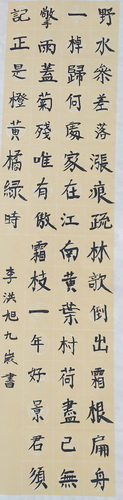 野水參差落漲痕疏林欹倒出霜根扁舟
一棹歸何處家在江南黃葉村荷盡已無
擎雨蓋菊殘唯有傲霜枝一年好景君須
記正是橙黃橘綠時
李洪旭九歲書